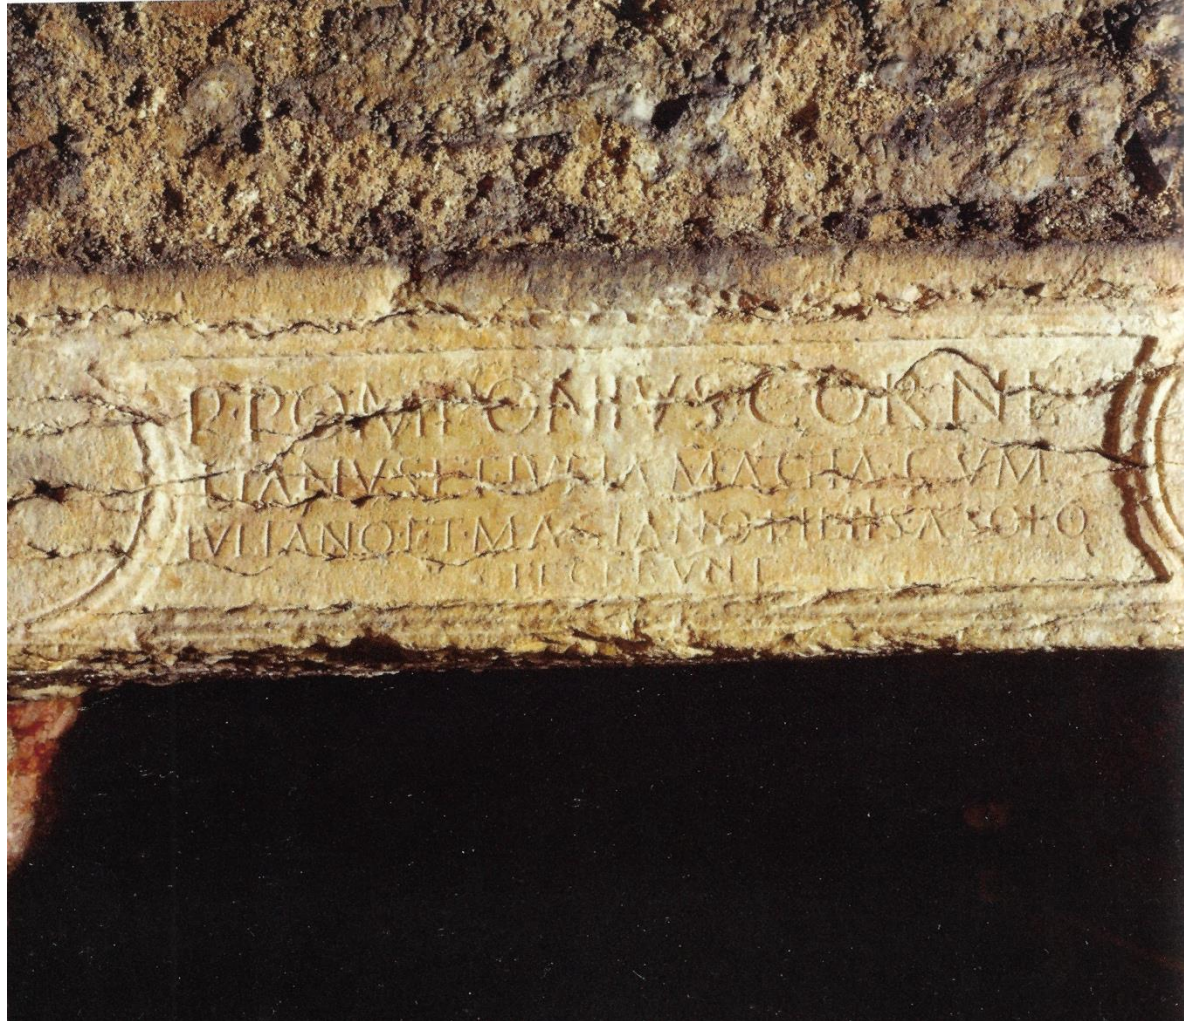 P·POMPONIVS·CORNE
LIANVS·ET·IVLIA MAGIA·CVM
IVLIANO·ET·MAGIANO·FILIIS·A·SOLO
FECERVNT